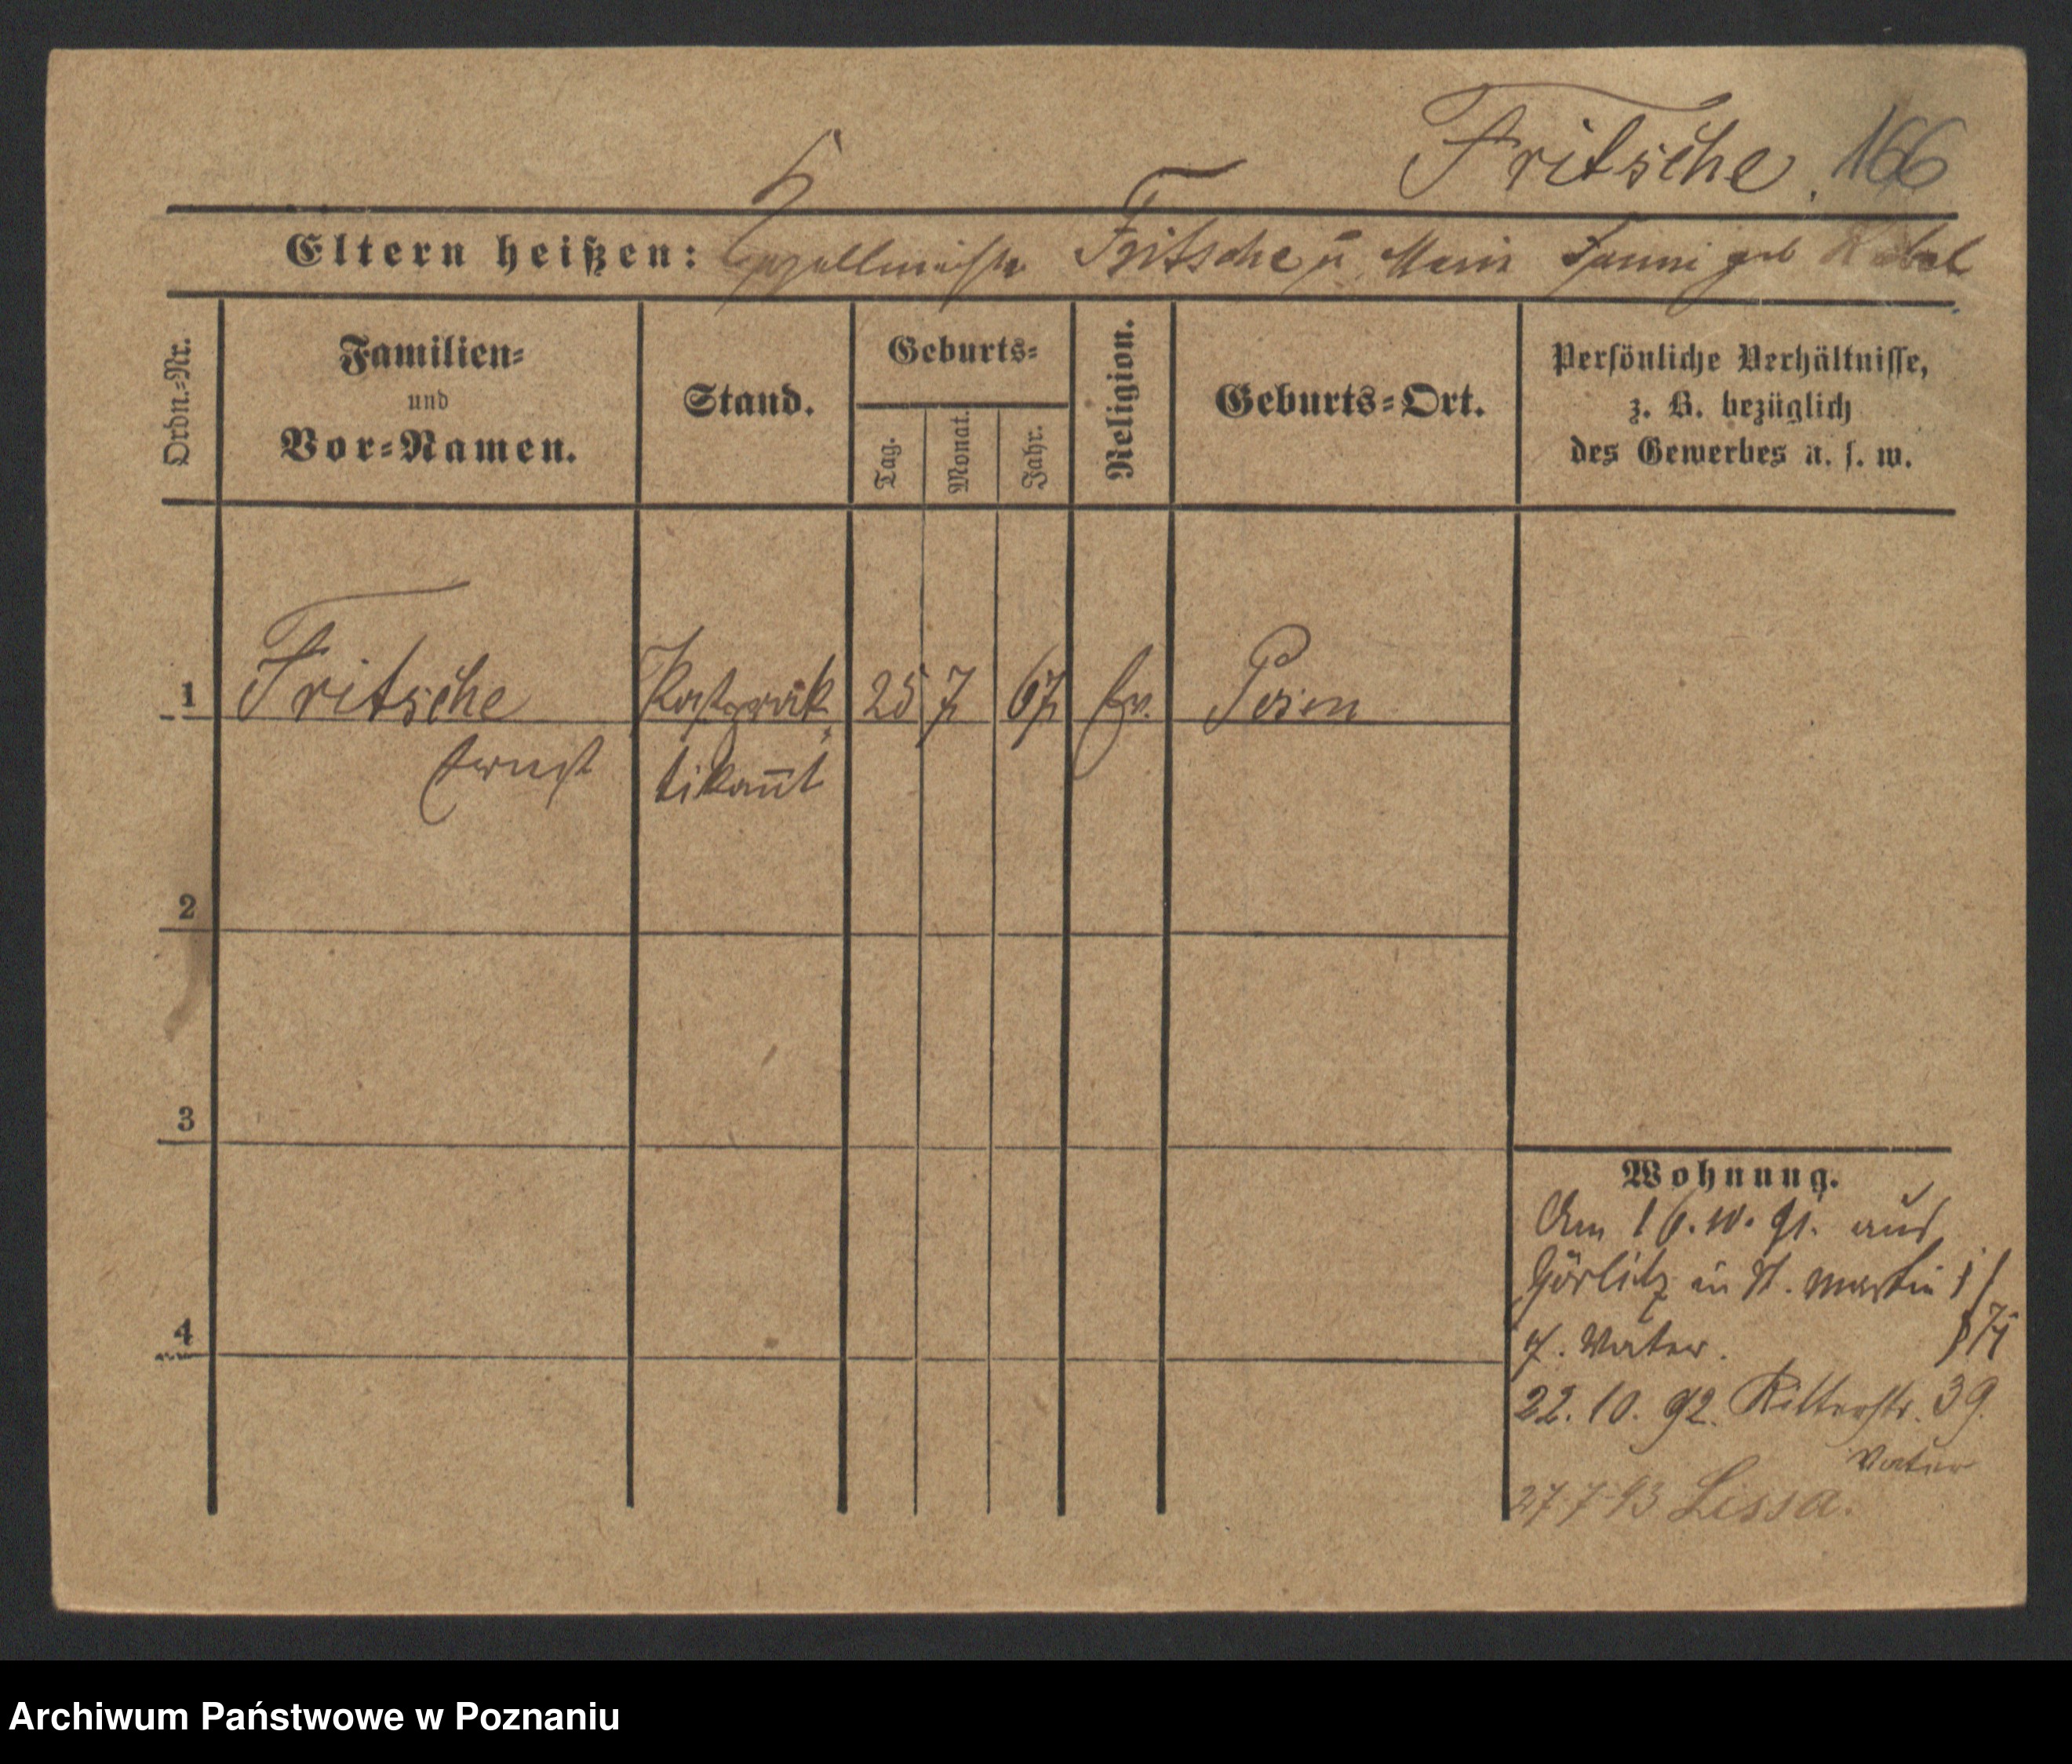 Fritsche. 166
Eltern heißen: Fritsche u Marie Fanni geb
Ordn.=Nr.
Familien=
und
Vor=Namen.
Stand.
Geburts=
Tag.
Monat.
Jahr.
Religion.
Geburts=Ort.
Persönliche Verhältnisse,
z. B. bezüglich
des Gewerbes u. s. w.
1 Fritsche 25 7 67 Ev. Posen
Ernst tikant
2
3
4
Wohnung.
Am 16.10.91. aus
Görlitz in St. Martin
Vater.
22. 10. 92. Ritterstr. 39.
Vater
27 7 93 Lissa.
Archiwum Państwowe w Poznaniu